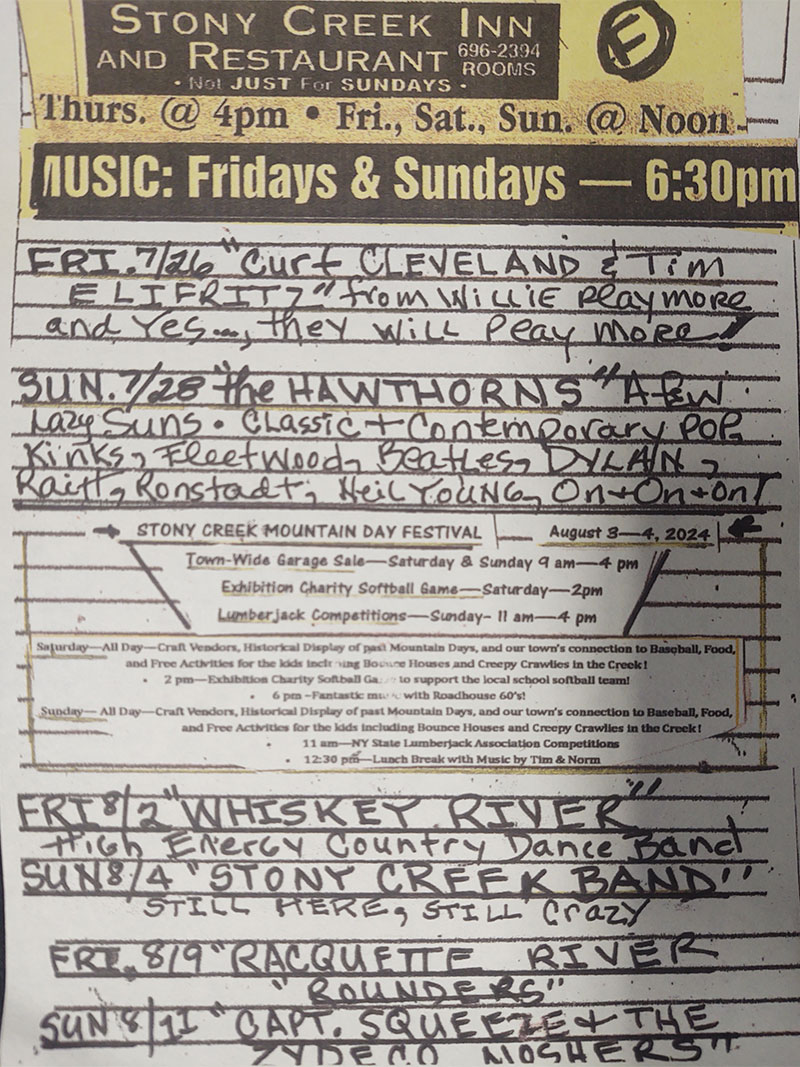 STONY CREEK INN
AND RESTAURANT 696-2394 ROOMS
• Not JUST For SUNDAYS •
E
Thurs. @ 4pm • Fri., Sat., Sun. @ Noon
MUSIC: Fridays & Sundays — 6:30pm
FRI. 7/26 "Curt CLEVELAND & Tim
ELIFRITZ" from WiLLiE PLAYmore
and Yes..., they WiLL PLay more!
SUN. 7/28 "the HAWTHORNS" A FEW
Lazy Suns • CLassic + Contemporary POP,
Kinks, FLeetwood, BeatLes, DYLAN,
Raitt, Ronstadt, NeiL YOUNG, On+On+On!
STONY CREEK MOUNTAIN DAY FESTIVAL August 3—4, 2024
Town-Wide Garage Sale—Saturday & Sunday 9 am—4 pm
Exhibition Charity Softball Game—Saturday—2pm
Lumberjack Competitions—Sunday- 11 am—4 pm
Saturday—All Day—Craft Vendors, Historical Display of past Mountain Days, and our town's connection to Baseball, Food,
and Free Activities for the kids Bounce Houses and Creepy Crawlies in the Creek!
• 2 pm—Exhibition Charity Softball to support the local school softball team!
• 6 pm -Fantastic with Roadhouse 60's!
Sunday— All Day—Craft Vendors, Historical Display of past Mountain Days, and our town's connection to Baseball, Food,
and Free Activities for the kids including Bounce Houses and Creepy Crawlies in the Creek!
• 11 am—NY State Lumberjack Association Competitions
• 12:30 pm—Lunch Break with Music by Tim & Norm
FRI 8/2 "WHISKEY RIVER"
High Energy Country Dance Band
SUN 8/4 "STONY CREEK BAND"
STILL HERE, STILL Crazy
FRI. 8/9 "RACQUETTE RIVER
"ROUNDERS"
SUN 8/11 "CAPT. SQUEEZE & THE
ZYDECO MOSHERS"